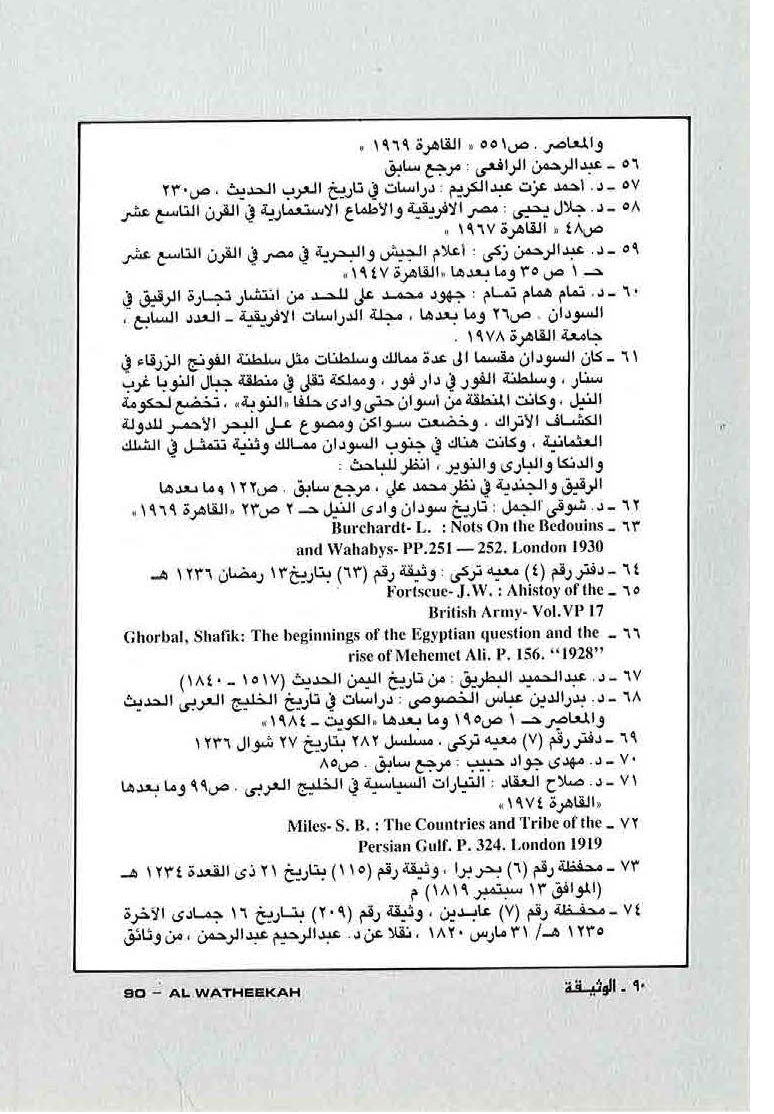 والمعاصر . ص٥٥١ « القاهرة ١٩٦٩ »
٥٦ ـ عبدالرحمن الرافعى : مرجع سابق
٥٧ ـ د . أحمد عزت عبدالكريم : دراسات في تاريخ العرب الحديث . ص٢٣٠
٥٨ ـ د . جلال يحيى : مصر الافريقية والأطماع الاستعمارية في القرن التاسع عشر
ص٤٨ « القاهرة ١٩٦٧ »
٥٩ ـ د. عبدالرحمن زكى : أعلام الجيش والبحرية في مصر في القرن التاسع عشر
حـ ١ ص ٣٥ وما بعدها «القاهرة ١٩٤٧»
٦٠ ـ د . تمام همام تمام : جهود محمد علي للحد من انتشار تجارة الرقيق في
السودان . ص٢٦ وما بعدها ، مجلة الدراسات الافريقية ـ العدد السابع ،
جامعة القاهرة ١٩٧٨ .
٦١ ـ كان السودان مقسما الى عدة ممالك وسلطنات مثل سلطنة الفونج الزرقاء في
سنار ، وسلطنة الفور في دار فور ، ومملكة تقلى في منطقة جبال النوبا غرب
النيل ، وكانت المنطقة من أسوان حتى وادى حلفا «النوبة» ، تخضع لحكومة
الكشاف الأتراك ، وخضعت سواكن ومصوع على البحر الأحمر للدولة
العثمانية ، وكانت هناك في جنوب السودان ممالك وثنية تتمثل في الشلك
والدنكا والبارى والنوير ، أنظر للباحث :
الرقيق والجندية في نظر محمد علي ، مرجع سابق . ص١٢٢ وما بعدها
٦٢ ـ د . شوقي الجمل : تاريخ سودان وادى النيل حـ ٢ ص٢٣ «القاهرة ١٩٦٩»
٦٣ ـ Burchardt- L. : Nots On the Bedouins
and Wahabys- PP.251 — 252. London 1930
٦٤ ـ دفتر رقم (٤) معيه تركى : وثيقة رقم (٦٣) بتاريخ١٣ رمضان ١٢٣٦ هـ
٦٥ ـ Fortscue- J.W. : Ahistoy of the
British Army- Vol.VP 17
٦٦ ـ Ghorbal, Shafik: The beginnings of the Egyptian question and the
rise of Mehemet Ali. P. 156. “1928”
٦٧ ـ د . عبدالحميد البطريق : من تاريخ اليمن الحديث (١٥١٧ ـ ١٨٤٠)
٦٨ ـ د . بدرالدين عباس الخصوصى : دراسات في تاريخ الخليج العربى الحديث
والمعاصر حـ ١ ص١٩٥ وما بعدها «الكويت ـ ١٩٨٤»
٦٩ ـ دفتر رقم (٧) معيه تركى ، مسلسل ٢٨٢ بتاريخ ٢٧ شوال ١٢٣٦
٧٠ ـ د. مهدى جواد حبيب : مرجع سابق . ص٨٥
٧١ ـ د. صلاح العقاد : التيارات السياسية في الخليج العربى . ص٩٩ وما بعدها
«القاهرة ١٩٧٤»
٧٢ ـ Miles- S. B. : The Countries and Tribe of the
Persian Gulf. P. 324. London 1919
٧٣ ـ محفظة رقم (٦) بحر برا ، وثيقة رقم (١١٥) بتاريخ ٢١ ذى القعدة ١٢٣٤ هـ
(الموافق ١٣ سبتمبر ١٨١٩) م
٧٤ ـ محفظة رقم (٧) عابدين ، وثيقة رقم (٢٠٩) بتاريخ ١٦ جمادى الآخرة
١٢٣٥ هـ/ ٣١ مارس ١٨٢٠ ، نقلا عن د. عبدالرحيم عبدالرحمن ، من وثائق
٩٠ ـ الوثيقة
90 - AL WATHEEKAH